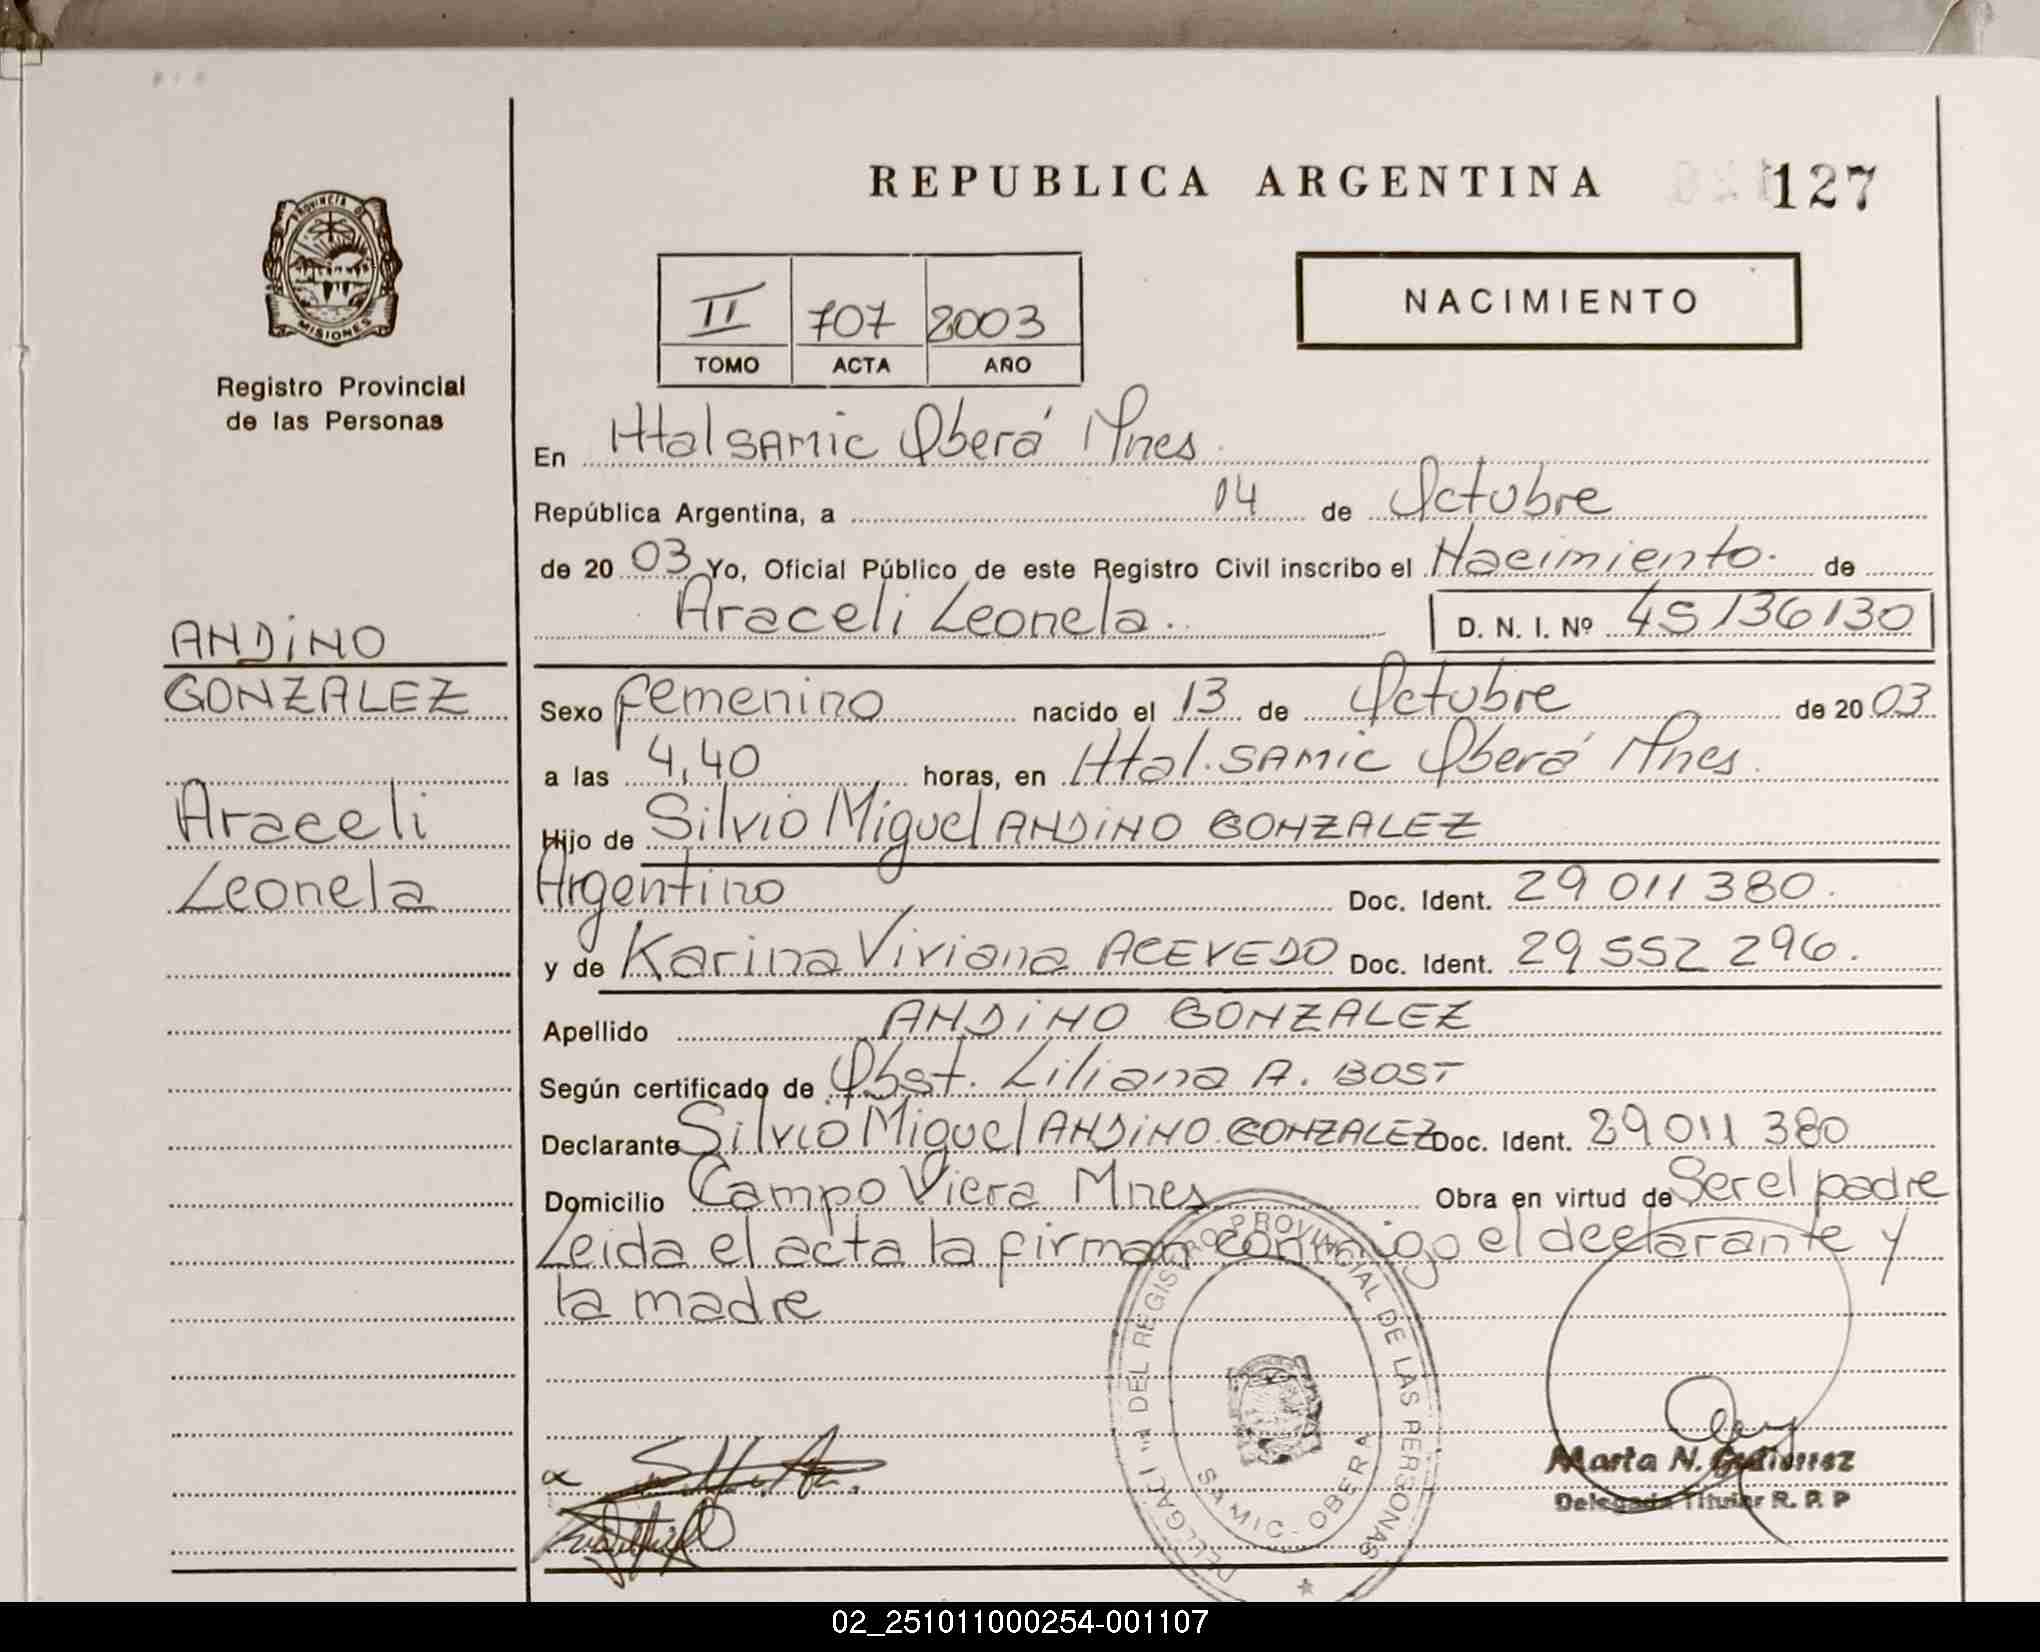 REPUBLICA ARGENTINA 127
PROVINCIA DE
MISIONES
Registro Provincial
de las Personas
NACIMIENTO
II 707 2003
TOMO ACTA AÑO
En Htal SAMIC Oberá Mnes.
República Argentina, a 14 de Octubre
de 20 03 Yo, Oficial Público de este Registro Civil inscribo el Nacimiento. de
Araceli Leonela. D. N. I. Nº 45136130
ANDiNO
GONZALEZ
Araceli
Leonela
Sexo femenino nacido el 13 de Octubre de 20 03
a las 4,40 horas, en Htal. SAMIC Oberá Mnes.
Hijo de Silvio Miguel ANDINO GONZALEZ
Argentino Doc. Ident. 29 011 380.
y de Karina Viviana ACEVEDO Doc. Ident. 29 552 296.
Apellido ANDiNO GONZALEZ
Según certificado de Obst. Liliana A. BOST
Declarante Silvio Miguel ANDiNO GONZALEZ Doc. Ident. 29 011 380
Domicilio Campo Viera Mnes Obra en virtud de Ser el padre
Leida el acta la firman conmigo el declarante y
la madre
DEL REGISTRO PROVINCIAL DE LAS PERSONAS
SAMIC - OBERA
Marta N. Gutierrez
Delegada Titular R. P. P
02_251011000254-001107